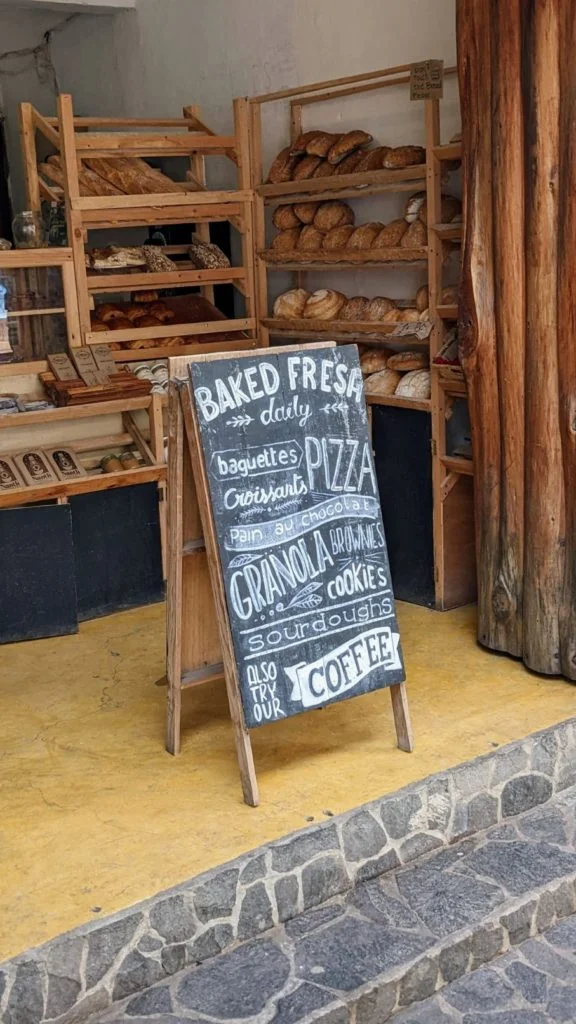 BAKED FRESH
daily
baguettes
PIZZA
Croissants
Pain au chocolat
GRANOLA
BROWNIES
COOKIES
sourdoughs
ALSO
TRY
OUR
COFFEE